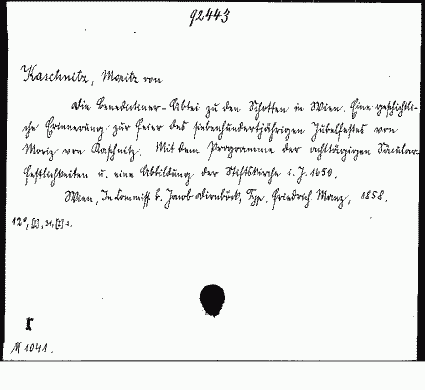 92443
Kaschnitz, Moritz von
Die Benedictiner-Abtei zu den Schotten in Wien. Eine geschichtli-
che Erinnerung zur Feier des siebenhundertjährigen Jubelfestes von
Moriz von Kaschnitz. Mit dem Programme der achttägigen Säcular-
Festlichkeiten u. eine Abbildung der Stiftskirche i. J. 1650.
Wien, In Commiss. b. Jacob Dirnböck, Typ. Friedrich Manz, 1858.
12°, [1], 31, [2] s.
r
M 1041.